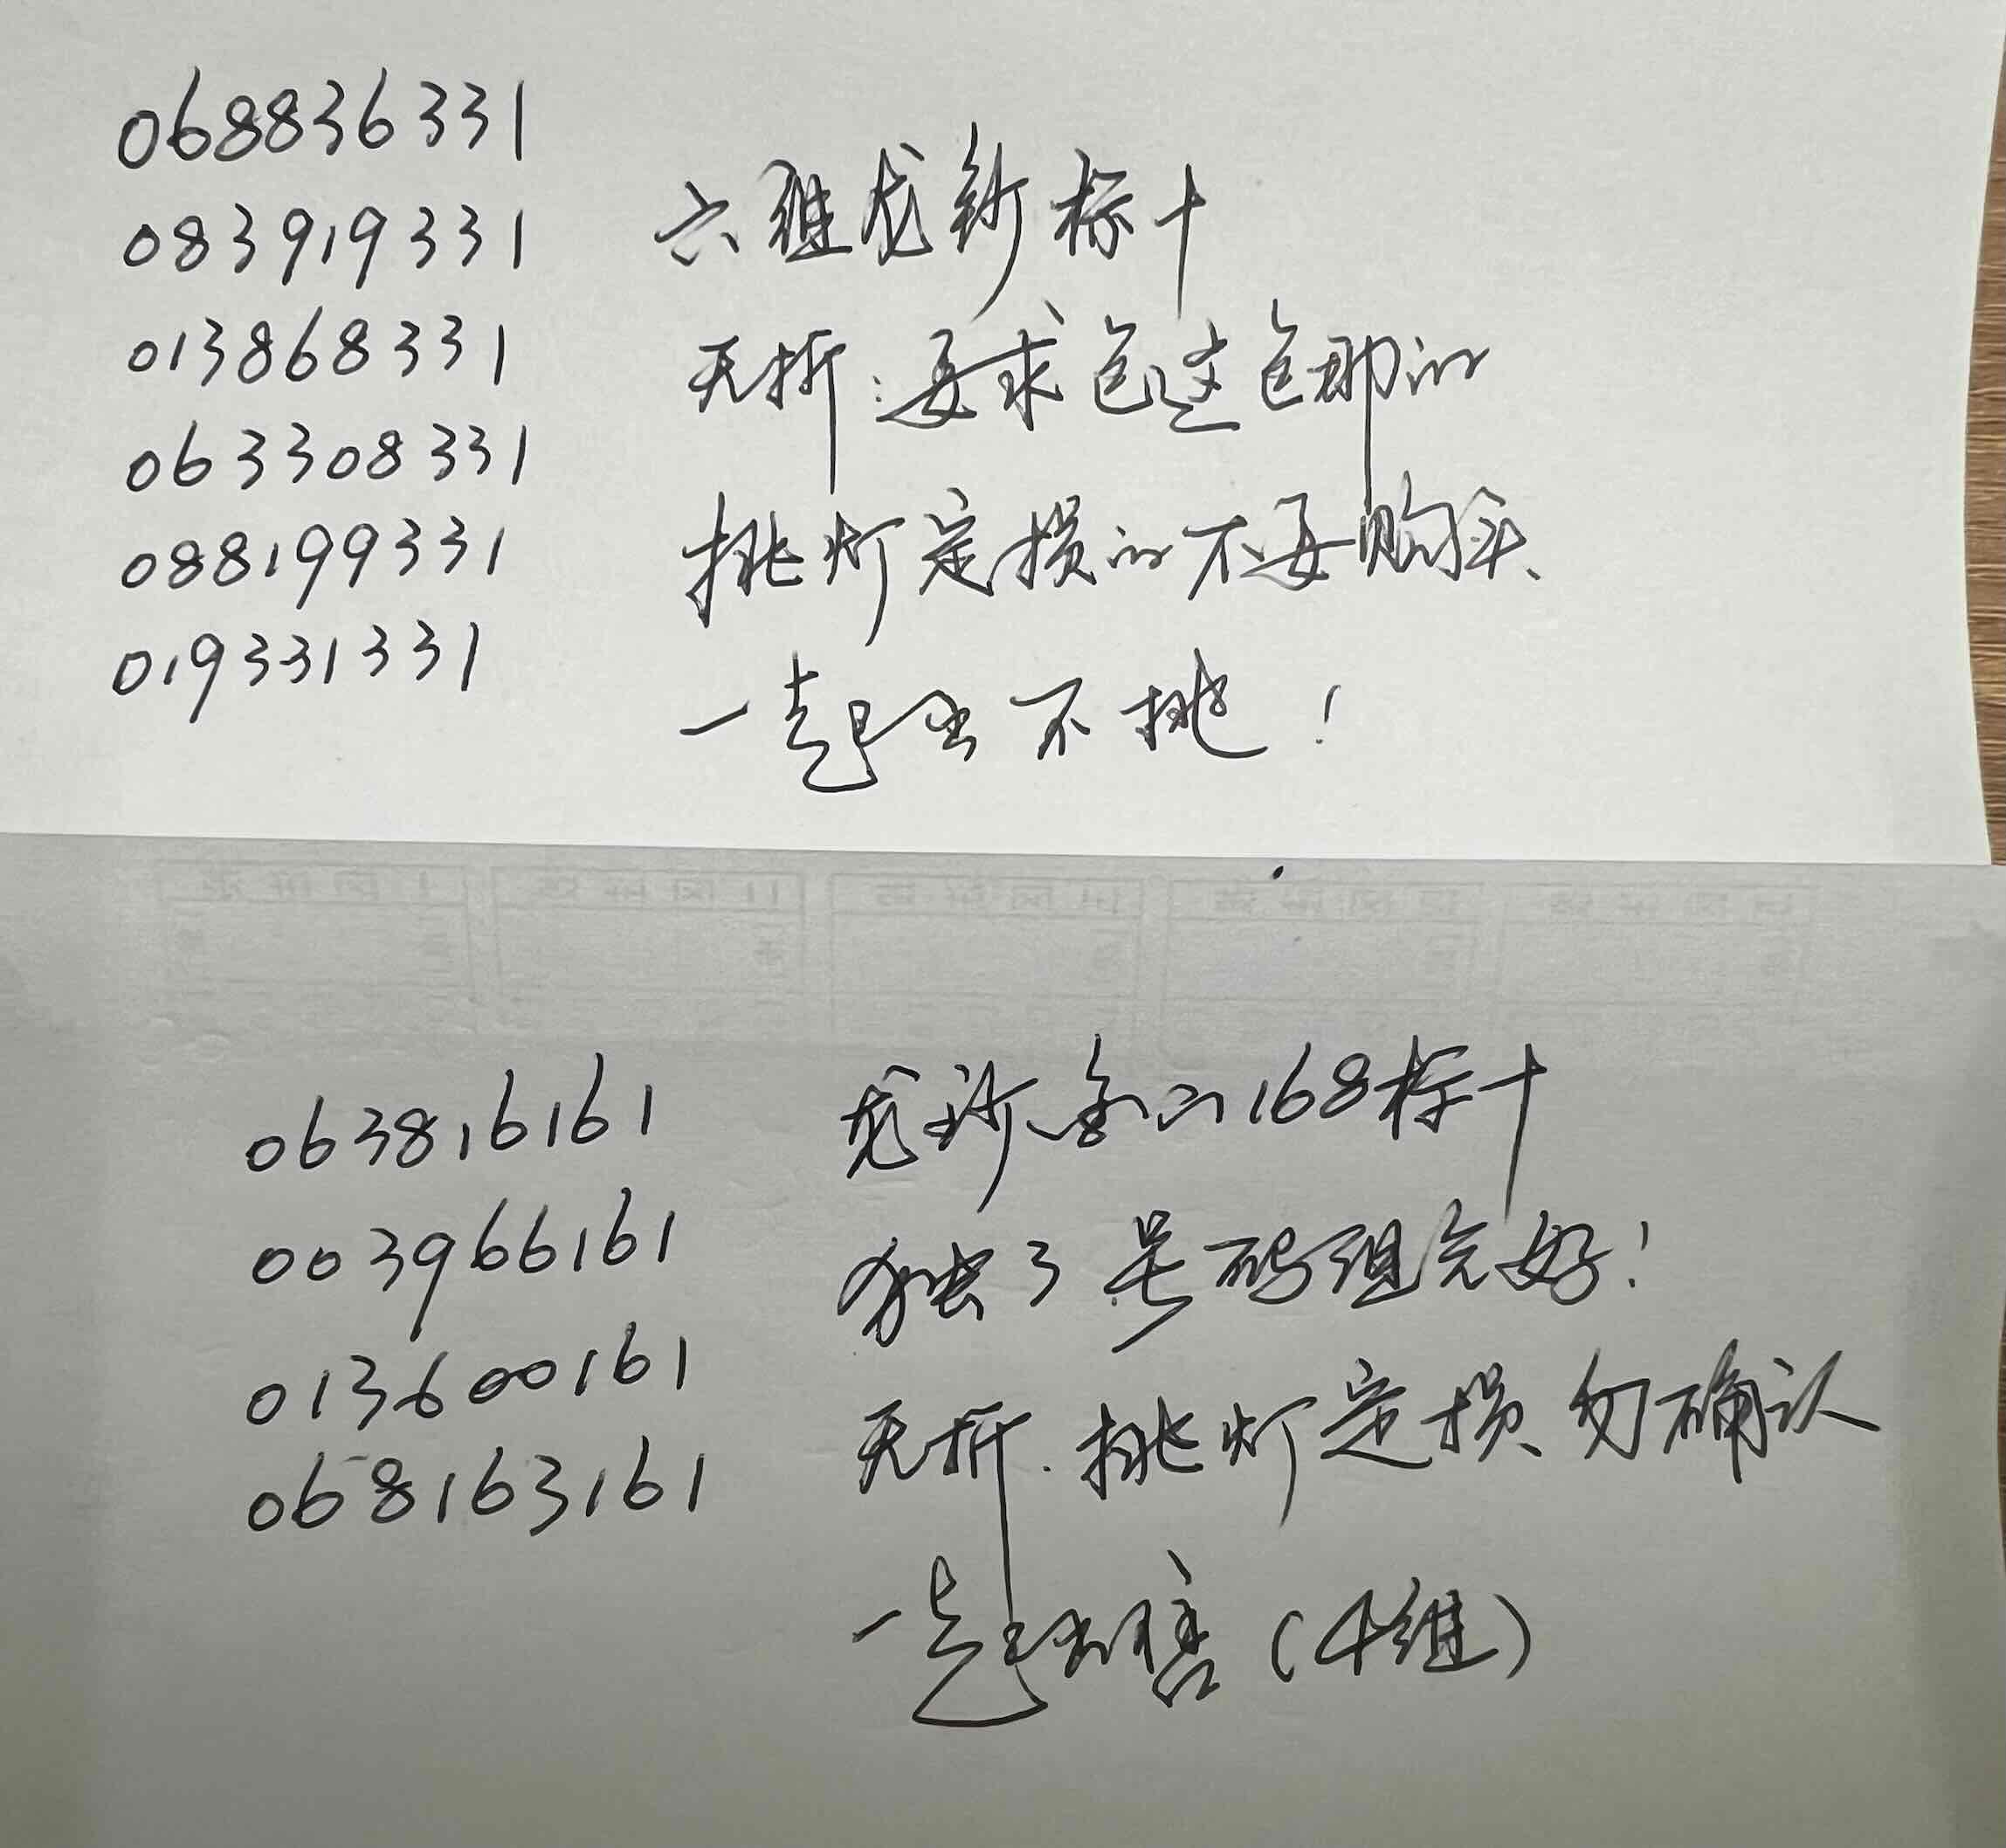 068836331
083919331
013868331
063308331
088199331
019331331
六组龙钞标十
无折:要求包这包那的
挑灯定损的不要购买
一起出不挑!
063816161
003966161
013600161
068163161
龙钞金山168标十
独了号码组完好!
无折.挑灯定损勿确认
一起出售(4组)